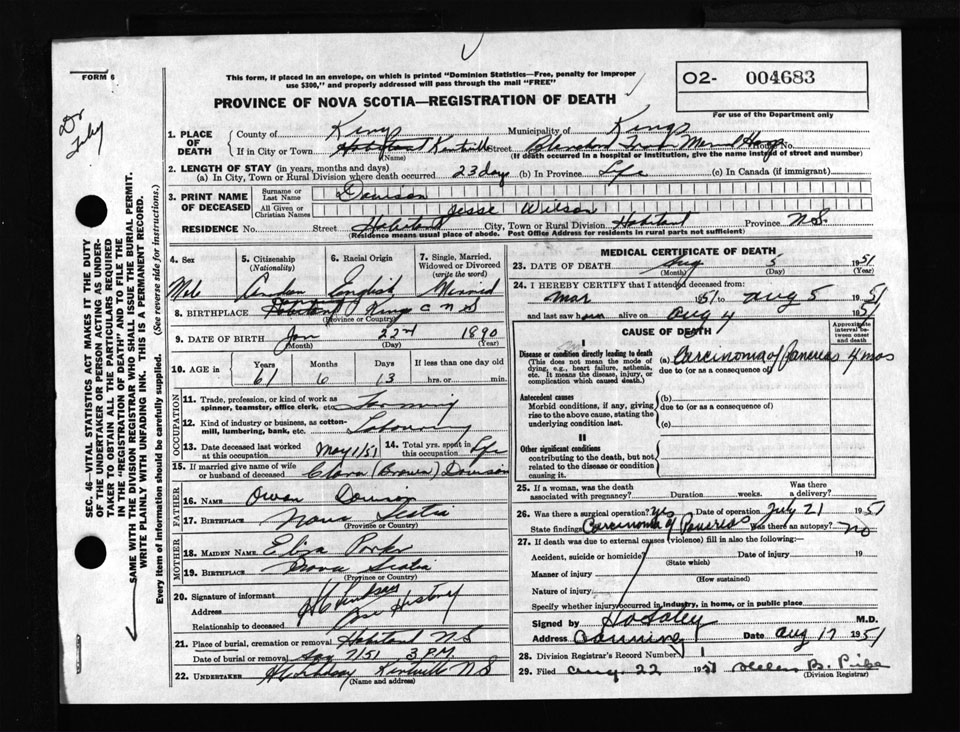 FORM 6
Dr
This form, if placed in an envelope, on which is printed "Dominion Statistics—Free, penalty for improper
use $300," and properly addressed will pass through the mail "FREE"
O2- 004683
For use of the Department only
PROVINCE OF NOVA SCOTIA—REGISTRATION OF DEATH
1. PLACE OF DEATH { County of Kings Municipality of Kings
If in City or Town Kentville Street House No.
(Name) (If death occurred in a hospital or institution, give the name instead of street and number)
2. LENGTH OF STAY (in years, months and days)
(a) In City, Town or Rural Division where death occurred 23 days (b) In Province Life (c) In Canada (if immigrant)
3. PRINT NAME OF DECEASED { Surname or Last Name Davison
All Given or Christian Names Jesse Wilson
RESIDENCE No. Street Habitant City, Town or Rural Division Habitant Province N.S.
(Residence means usual place of abode. Post Office Address for residents in rural parts not sufficient)
4. Sex Male
5. Citizenship (Nationality)
6. Racial Origin English
7. Single, Married, Widowed or Divorced (write the word) Married
8. BIRTHPLACE Habitant Kings C N S
(Province or Country)
9. DATE OF BIRTH Jan 22nd 1890
(Month) (Day) (Year)
10. AGE in Years 61 Months 6 Days 13 If less than one day old hrs. or min.
OCCUPATION
11. Trade, profession, or kind of work as spinner, teamster, office clerk, etc. Farming
12. Kind of industry or business, as cotton-mill, lumbering, bank, etc. Labouring
13. Date deceased last worked at this occupation May 1/51
14. Total yrs. spent in this occupation Life
15. If married give name of wife or husband of deceased Clara (Brown) Davison
FATHER
16. NAME Owen Davison
17. BIRTHPLACE Nova Scotia
(Province or Country)
MOTHER
18. MAIDEN NAME Eliza
19. BIRTHPLACE Nova Scotia
(Province or Country)
20. Signature of informant
Address History
Relationship to deceased
21. Place of burial, cremation or removal Habitant N S
Date of burial or removal Aug 7/51 3 P.M
22. UNDERTAKER Kentville N S
(Name and address)
MEDICAL CERTIFICATE OF DEATH
23. DATE OF DEATH Aug 5 1951
(Month) (Day) (Year)
24. I HEREBY CERTIFY that I attended deceased from:
Mar 1951 to Aug 5 1951
and last saw him alive on Aug 4 1951
CAUSE OF DEATH
Approximate interval between onset and death
I
Disease or condition directly leading to death
(This does not mean the mode of dying, e.g., heart failure, asthenia, etc. It means the disease, injury, or complication which caused death.)
(a) Carcinoma of Pancreas 4 mos
due to (or as a consequence of)
Antecedent causes
Morbid conditions, if any, giving rise to the above cause, stating the underlying condition last.
(b)
due to (or as a consequence of)
(c)
II
Other significant conditions
contributing to the death, but not related to the disease or condition causing it.
25. If a woman, was the death associated with pregnancy? Duration weeks. Was there a delivery?
26. Was there a surgical operation? Yes Date of operation July 21 1951
State findings Carcinoma of Pancreas Was there an autopsy? No
27. If death was due to external causes (violence) fill in also the following:—
Accident, suicide or homicide? Date of injury 19
(State which)
Manner of injury
(How sustained)
Nature of injury
Specify whether injury occurred in industry, in home, or in public place
Signed by M.D.
Address Canning Date Aug 17 1951
28. Division Registrar's Record Number 1
29. Filed Aug. 22 1951 Helen B.
(Division Registrar)
SEC. 46—VITAL STATISTICS ACT MAKES IT THE DUTY
OF THE UNDERTAKER OR PERSON ACTING AS UNDER-
TAKER TO OBTAIN ALL THE PARTICULARS REQUIRED
IN THE "REGISTRATION OF DEATH" AND TO FILE THE
SAME WITH THE DIVISION REGISTRAR WHO SHALL ISSUE THE BURIAL PERMIT.
WRITE PLAINLY WITH UNFADING INK. THIS IS A PERMANENT RECORD.
Every item of information should be carefully supplied. (See reverse side for instructions.)